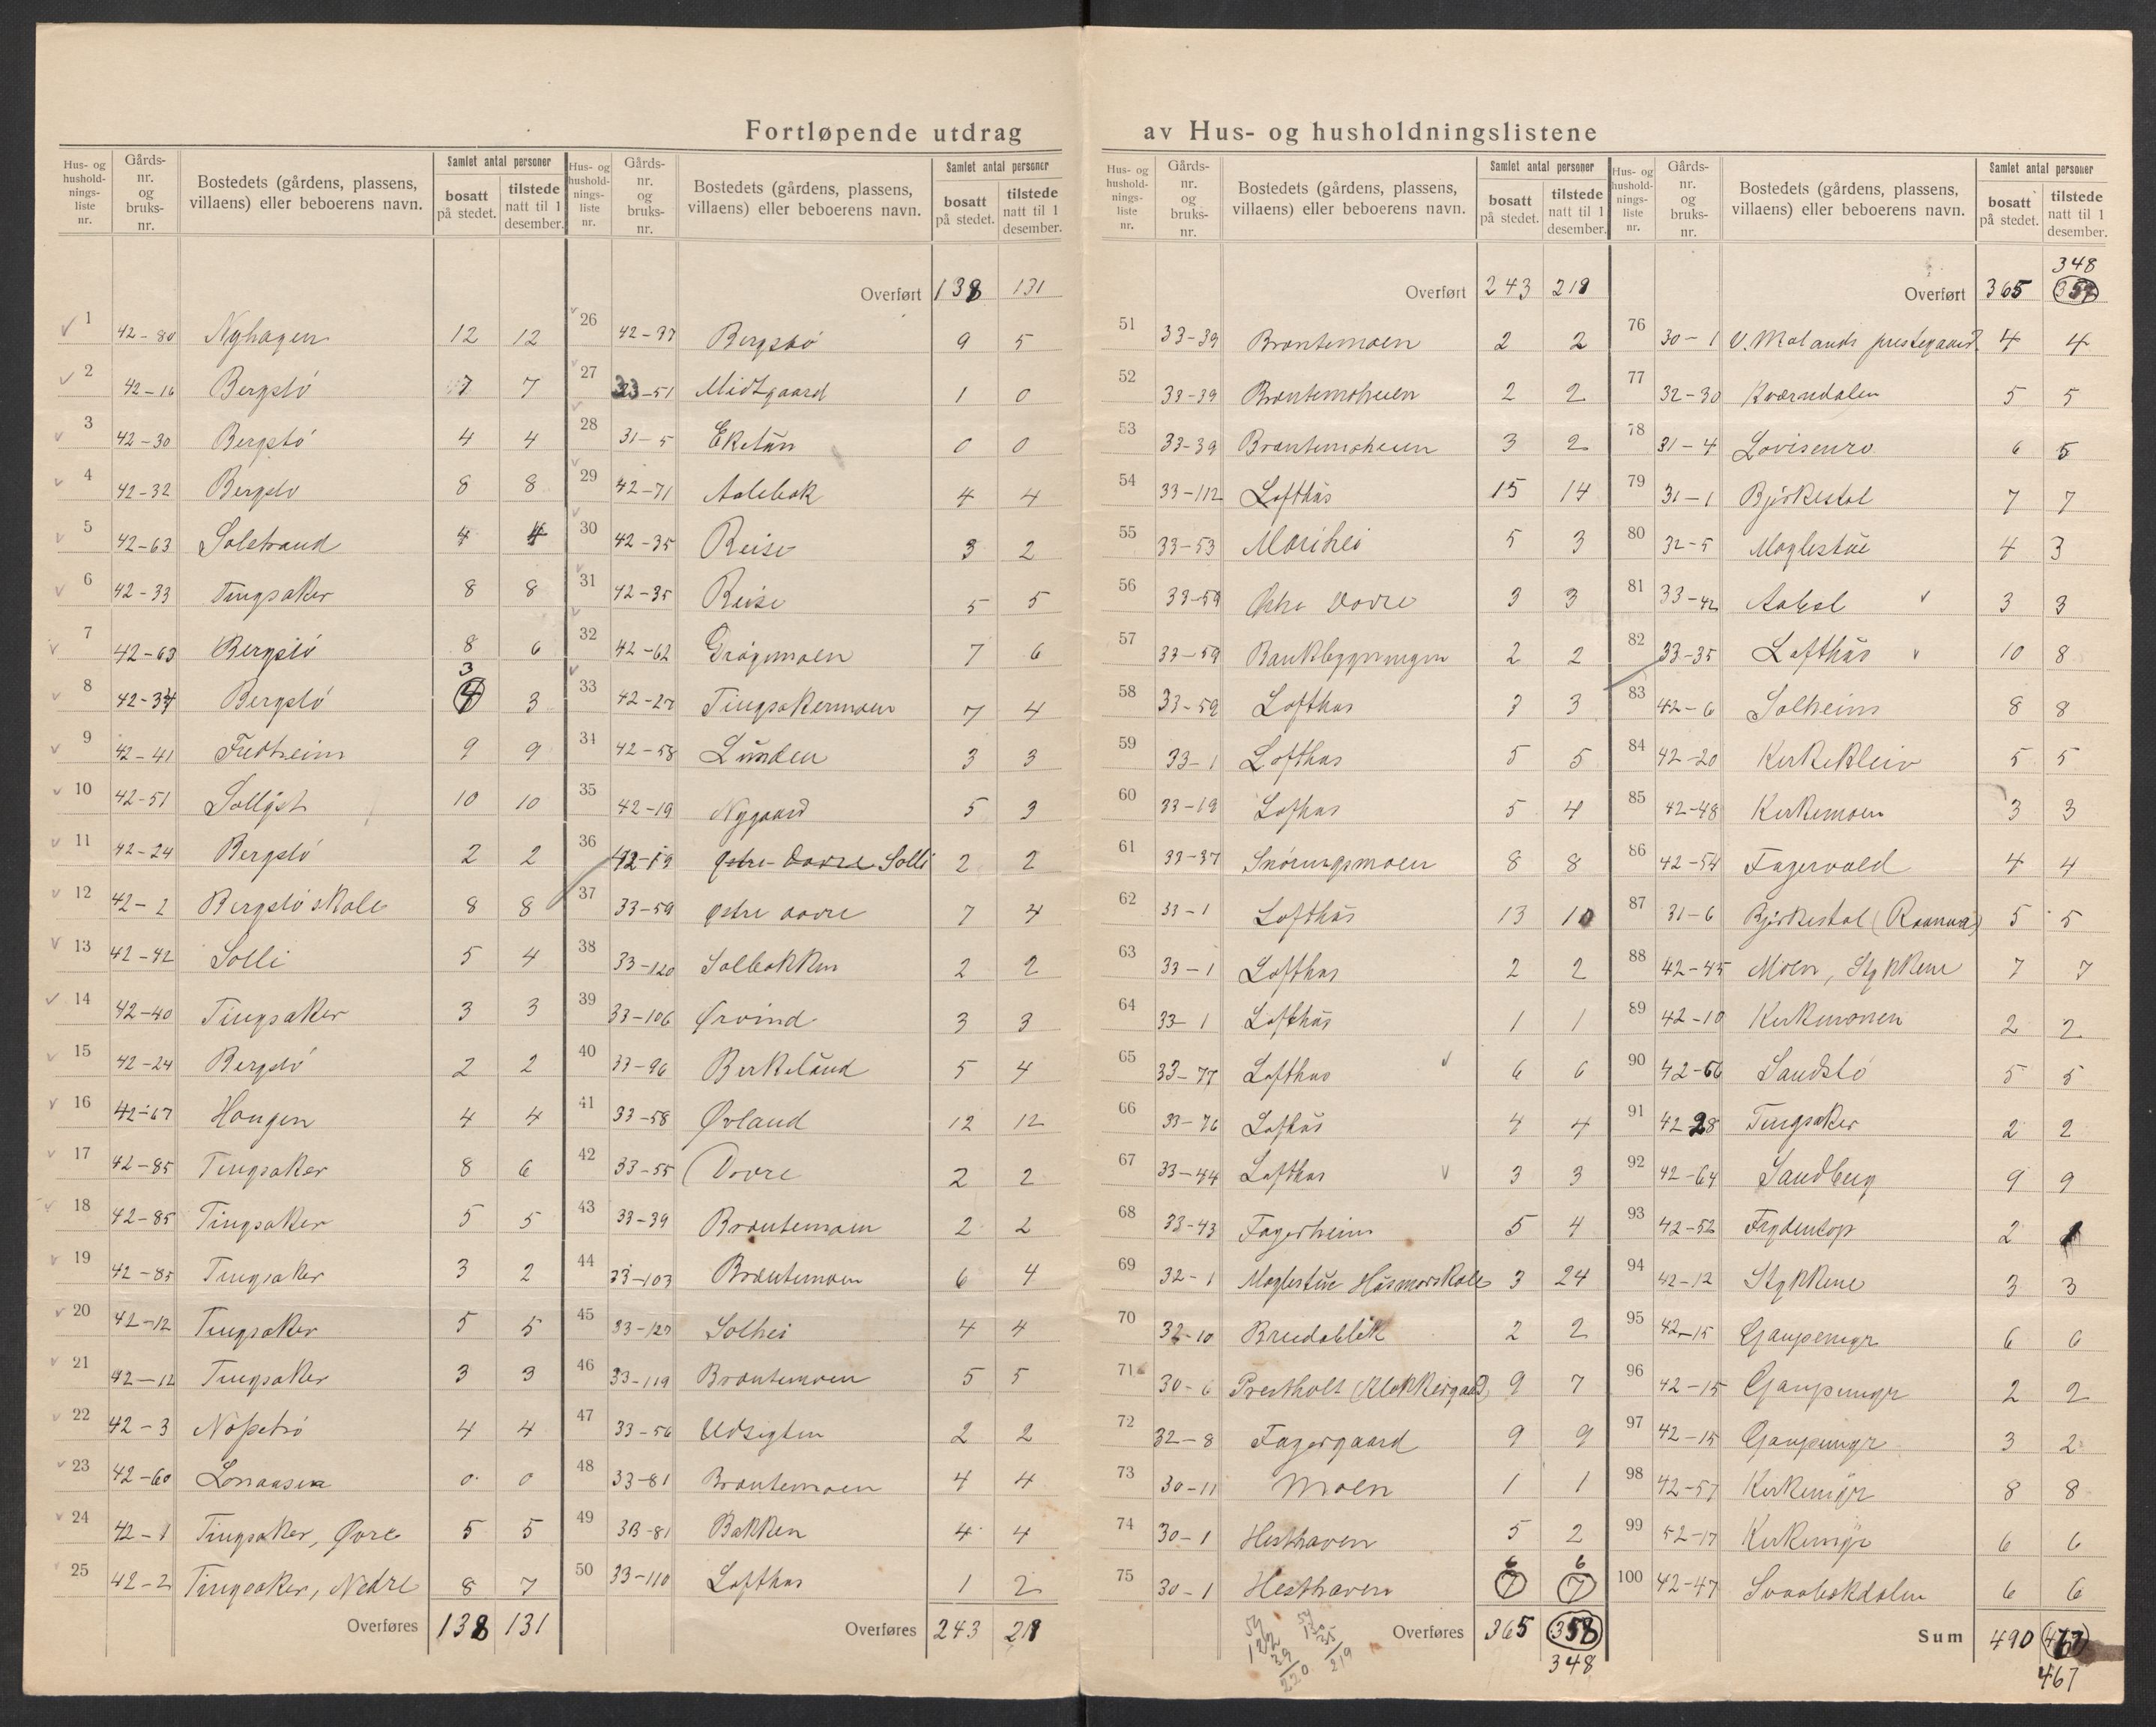 Fortløpende utdrag av Hus- og husholdningslistene
Hus- og husholdningsliste nr. | Gårds- nr. og bruks- nr. | Bostedets (gårdens, plassens, villaens) eller beboerens navn. | Samlet antal personer bosatt på stedet. | tilstede natt til 1 desember.
1 42-80 Nyhagen 12 12
2 42-16 Bergstø 7 7
3 42-30 Bergstø 4 4
4 42-32 Bergstø 8 8
5 42-63 Solstrand 4 4
6 42-33 Tingsaker 8 8
7 42-63 Bergstø 8 6
3
8 42-34 Bergstø 4 3
9 42-41 Fredheim 9 9
10 42-51 Solbgst 10 10
11 42-24 Bergstø 2 2
12 42-2 Bergstø skole 8 8
13 42-42 Solli 5 4
14 42-40 Tingsaker 3 3
15 42-24 Bergstø 2 2
16 42-67 Haugen 4 4
17 42-85 Tingsaker 8 6
18 42-85 Tingsaker 5 5
19 42-85 Tingsaker 3 2
20 42-12 Tingsaker 5 5
21 42-12 Tingsaker 3 3
22 42-3 4 4
23 42-60 0 0
24 42-1 Tingsaker, Øvre 5 5
25 42-2 Tingsaker, Nedre 8 7
Overføres 138 131
Hus- og husholdningsliste nr. | Gårds- nr. og bruks- nr. | Bostedets (gårdens, plassens, villaens) eller beboerens navn. | Samlet antal personer bosatt på stedet. | tilstede natt til 1 desember.
Overført 138 131
26 42-97 Bergstø 9 5
27 33-51 Midtgaard 1 0
28 31-5 Eketun 0 0
29 42-71 Aalebæk 4 4
30 42-35 Reise 3 2
31 42-35 Reise 5 5
32 42-62 Grøgemoen 7 6
33 42-27 Tingsakermoen 7 4
34 42-58 Lunden 3 3
35 42-19 Nygaard 5 3
36 42-19 Østre Dovre Solli 2 2
37 33-59 Østre Dovre 7 4
38 33-120 Solbakken 2 2
39 33-106 Ørvind 3 3
40 33-96 Birkelund 5 4
41 33-58 Øvland 12 12
42 33-55 Dovre 2 2
43 33-39 Brøntemoen 2 2
44 33-103 Brøntemoen 6 4
45 33-127 Solhei 4 4
46 33-119 Brøntemoen 5 5
47 33-56 Udsigten 2 2
48 33-81 Brøntemoen 4 4
49 33-81 Bakken 4 4
50 33-110 Lofthus 1 2
Overføres 243 218
Hus- og husholdningsliste nr. | Gårds- nr. og bruks- nr. | Bostedets (gårdens, plassens, villaens) eller beboerens navn. | Samlet antal personer bosatt på stedet. | tilstede natt til 1 desember.
Overført 243 218
51 33-39 Brøntemoen 2 2
52 33-39 Brøntemoheien 2 2
53 33-39 Brøntemoheien 3 2
54 33-112 Lofthus 15 14
55 33-53 Morihei 5 3
56 33-59 Østre Dovre 3 3
57 33-59 Bankbygningen 2 2
58 33-59 Lofthus 3 3
59 33-1 Lofthus 5 5
60 33-19 Lofhus 5 4
61 33-37 Snøringsmoen 8 8
62 33-1 Lofthus 13 10
63 33-1 Lofthus 2 2
64 33-1 Lofthus 1 1
65 33-77 Lofthus 6 6
66 33-76 Lofthus 4 4
67 33-44 Lofthus 3 3
68 33-43 Fagerheim 5 4
69 32-1 Moglestue Husmorskole 3 24
70 32-10 Breidablik 2 2
71 30-6 Prestholt (Klokkergaard) 9 7
72 32-8 Fagergaard 9 9
73 30-11 Moen 1 1
74 30-1 Hesthaven 5 2
6 6
75 30-1 Hesthaven 7 7
Overføres 365 358
348
Hus- og husholdningsliste nr. | Gårds- nr. og bruks- nr. | Bostedets (gårdens, plassens, villaens) eller beboerens navn. | Samlet antal personer bosatt på stedet. | tilstede natt til 1 desember.
348
Overført 365 358
76 30-1 V. Molands prestegaard 4 4
77 32-30 Kværndalen 5 5
78 31-4 Lovisenro 6 5
79 31-1 Bjørkestøl 7 7
80 32-5 Moglestue 4 3
81 33-42 3 3
82 33-35 Lofthus 10 8
83 42-6 Solheim 8 8
84 42-20 Kirkekleiv 5 5
85 42-48 Kirkemoen 3 3
86 42-54 Fagervold 4 4
87 31-6 Bjørkestøl 5 5
88 42-45 Moen, Stykkene 7 7
89 42-10 Kirkemonen 2 2
90 42-66 Sandstø 5 5
91 42-28 Tingsaker 2 2
92 42-64 Sandberg 9 9
93 42-52 Frydentop 2 1
94 42-12 Stykkene 3 3
95 42-15 Gaupemyr 6 6
96 42-15 Gaupemyr 2 2
97 42-15 Gaupemyr 3 2
98 42-57 Kirkemyr 8 8
99 52-17 Kirkemyr 6 6
100 42-47 Svaabækdalen 6 6
Sum 490 467
467